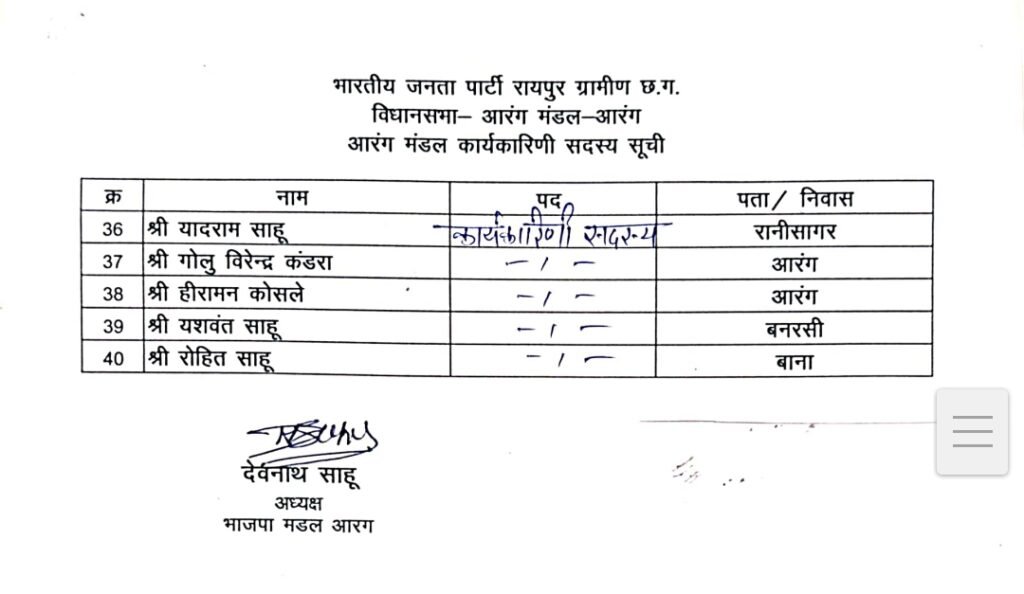 भारतीय जनता पार्टी रायपुर ग्रामीण छ.ग.
विधानसभा– आरंग मंडल–आरंग
आरंग मंडल कार्यकारिणी सदस्य सूची
क्र नाम पद पता/ निवास
36 श्री यादराम साहू कार्यकारिणी सदस्य रानीसागर
37 श्री गोलु विरेन्द्र कंडरा – ı – आरंग
38 श्री हीरामन कोसले – ı – आरंग
39 श्री यशवंत साहू – ı – बनरसी
40 श्री रोहित साहू – ı – बाना
देवनाथ साहू
अध्यक्ष
भाजपा मडल आरग